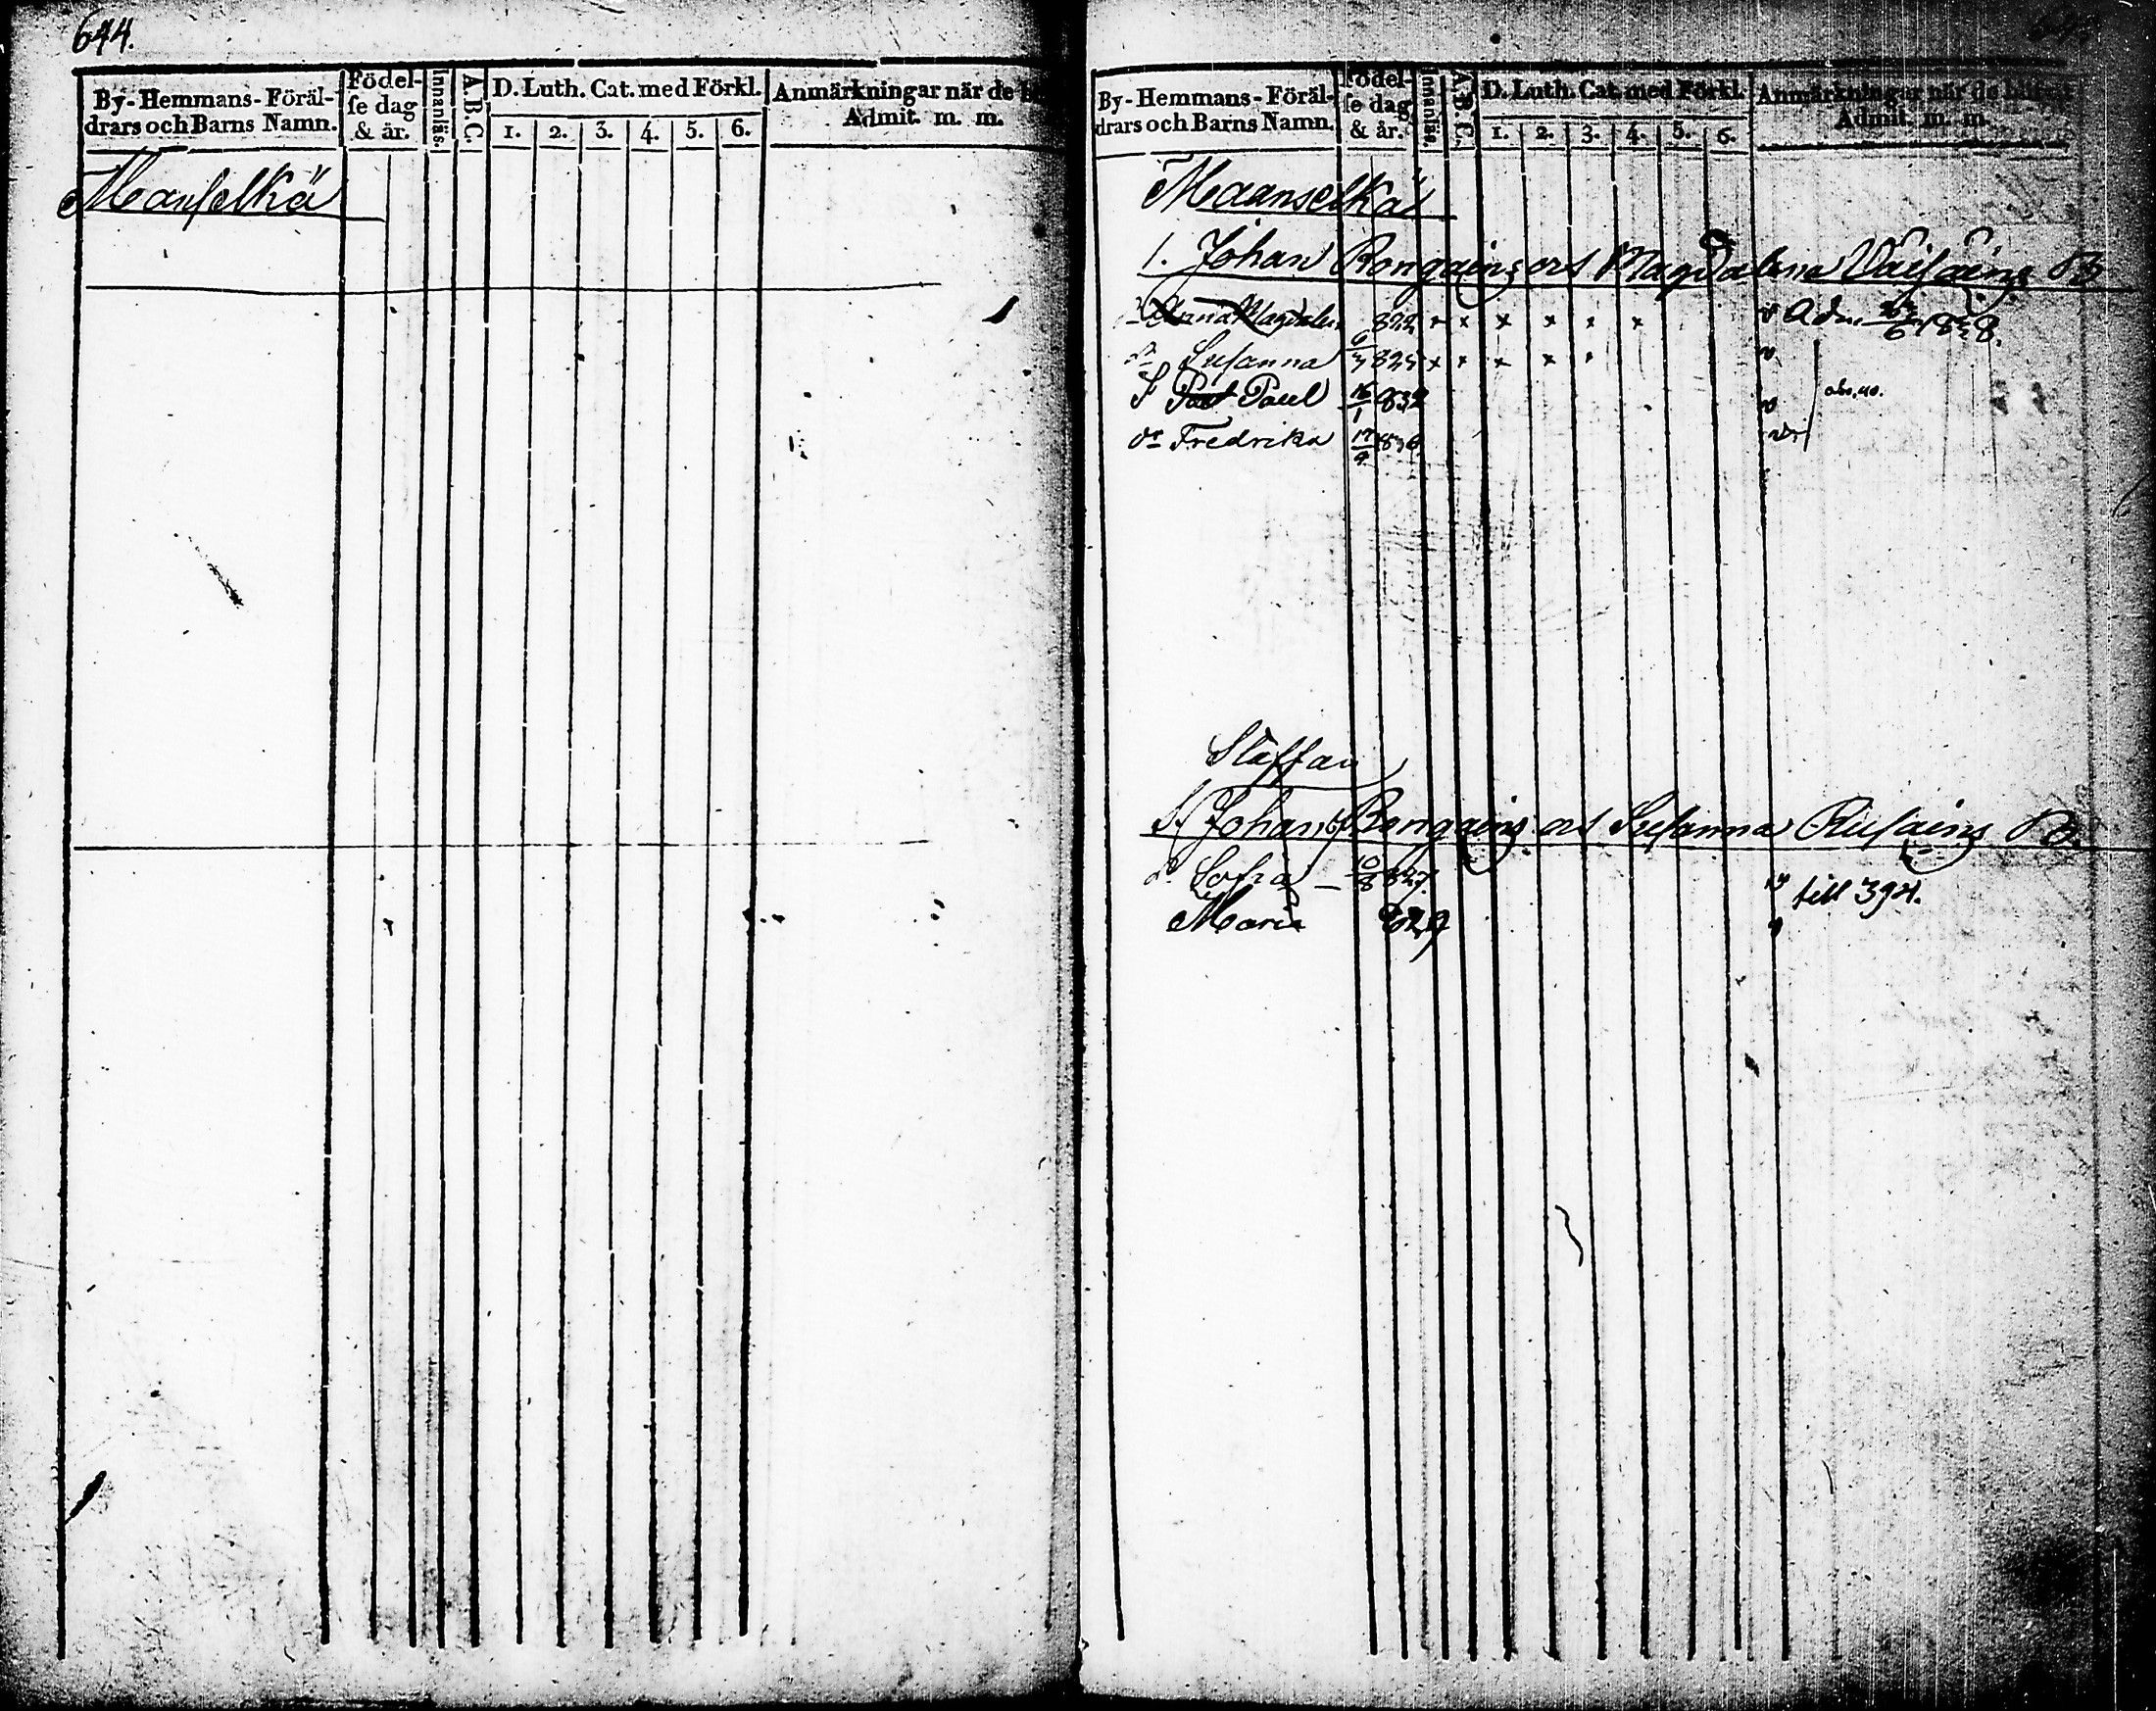 644.
By-Hemmans-Föräl-
drars och Barns Namn.
Födel-
se dag
& är.
Innanläs.
A.B.C.
D. Luth. Cat. med Förkl.
1. 2. 3. 4. 5. 6.
Anmärkningar när de
Admit. m. m.
Manselkä
By-Hemmans-Föräl-
drars och Barns Namn.
Födel-
se dag
& år.
Innanläs.
A.B.C.
D. Luth. Cat. med Förkl.
1. 2. 3. 4. 5. 6.
Anmärkningar när de blifvit
Admit. m. m.
Maanselkä
1. Johan Rongains och Magdalena Väisäins B
Anna Magdalena 822 x x x x x x v Adm. 1838.
dr Susanna 6/7 825 x x x x v
S Paul 16/1 832 v abs. 40.
dr Fredrika 17/9 836
Staffan
S. Johan Rongains och Susanna Rusains B.
dr Sofia 10/8 827. till 394.
Maria 829